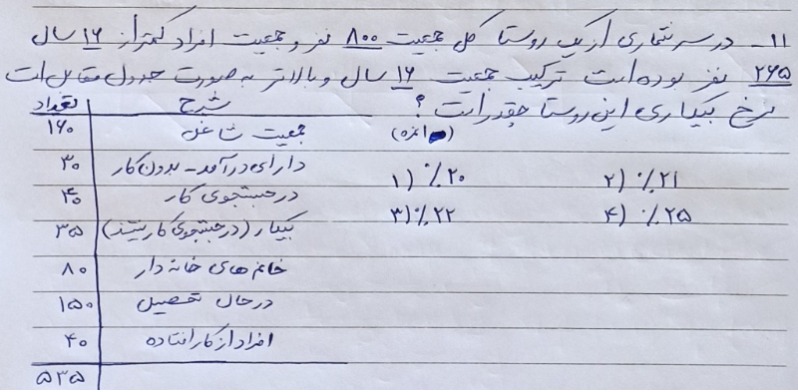 ۱۱- در سرشماری از یک روستا کل جمعیت ۸۰۰ نفر و جمعیت افراد کمتر از ۱۶ سال
۲۶۵ نفر بوده است ترکیب جمعیت ۱۶ سال و بالاتر به صورت جدول مقابل است
نرخ بیکاری این روستا چقدر است ؟
(۱ نمره)
۱) ٪۲۰ ۲) ٪۲۱
۳) ٪۲۲ ۴) ٪۲۵
شرح تعداد
جمعیت شاغل ۱۶۰
دارای درآمد - بدون کار ۳۰
در جستجوی کار ۴۰
بیکار (در جستجوی کار نیستند) ۳۵
خانم های خانه دار ۸۰
در حال تحصیل ۱۵۰
افراد از کار افتاده ۴۰
۵۳۵